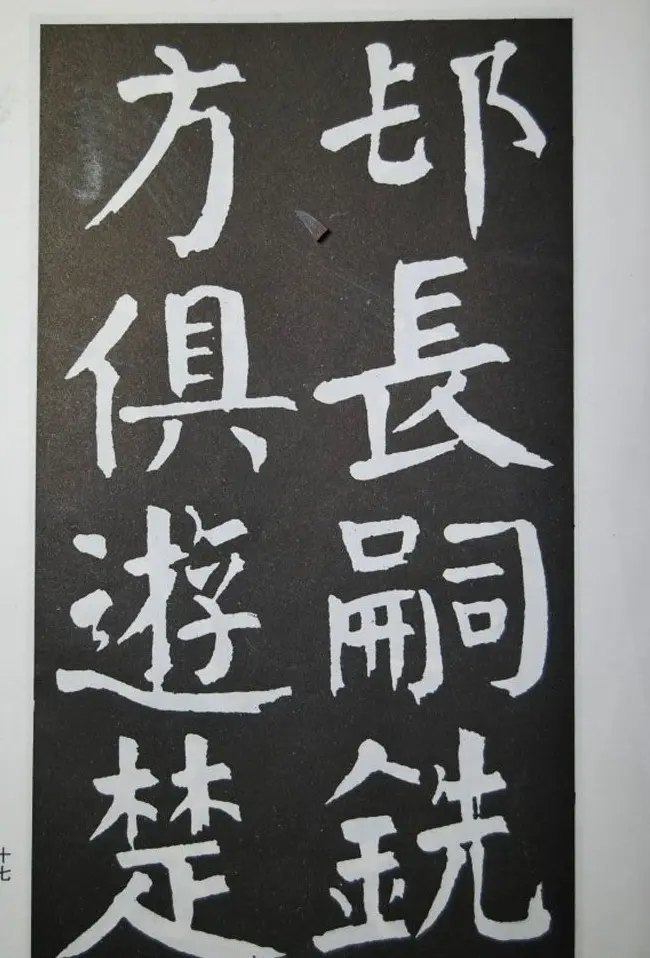 邨長嗣銑
方俱遊楚
十七